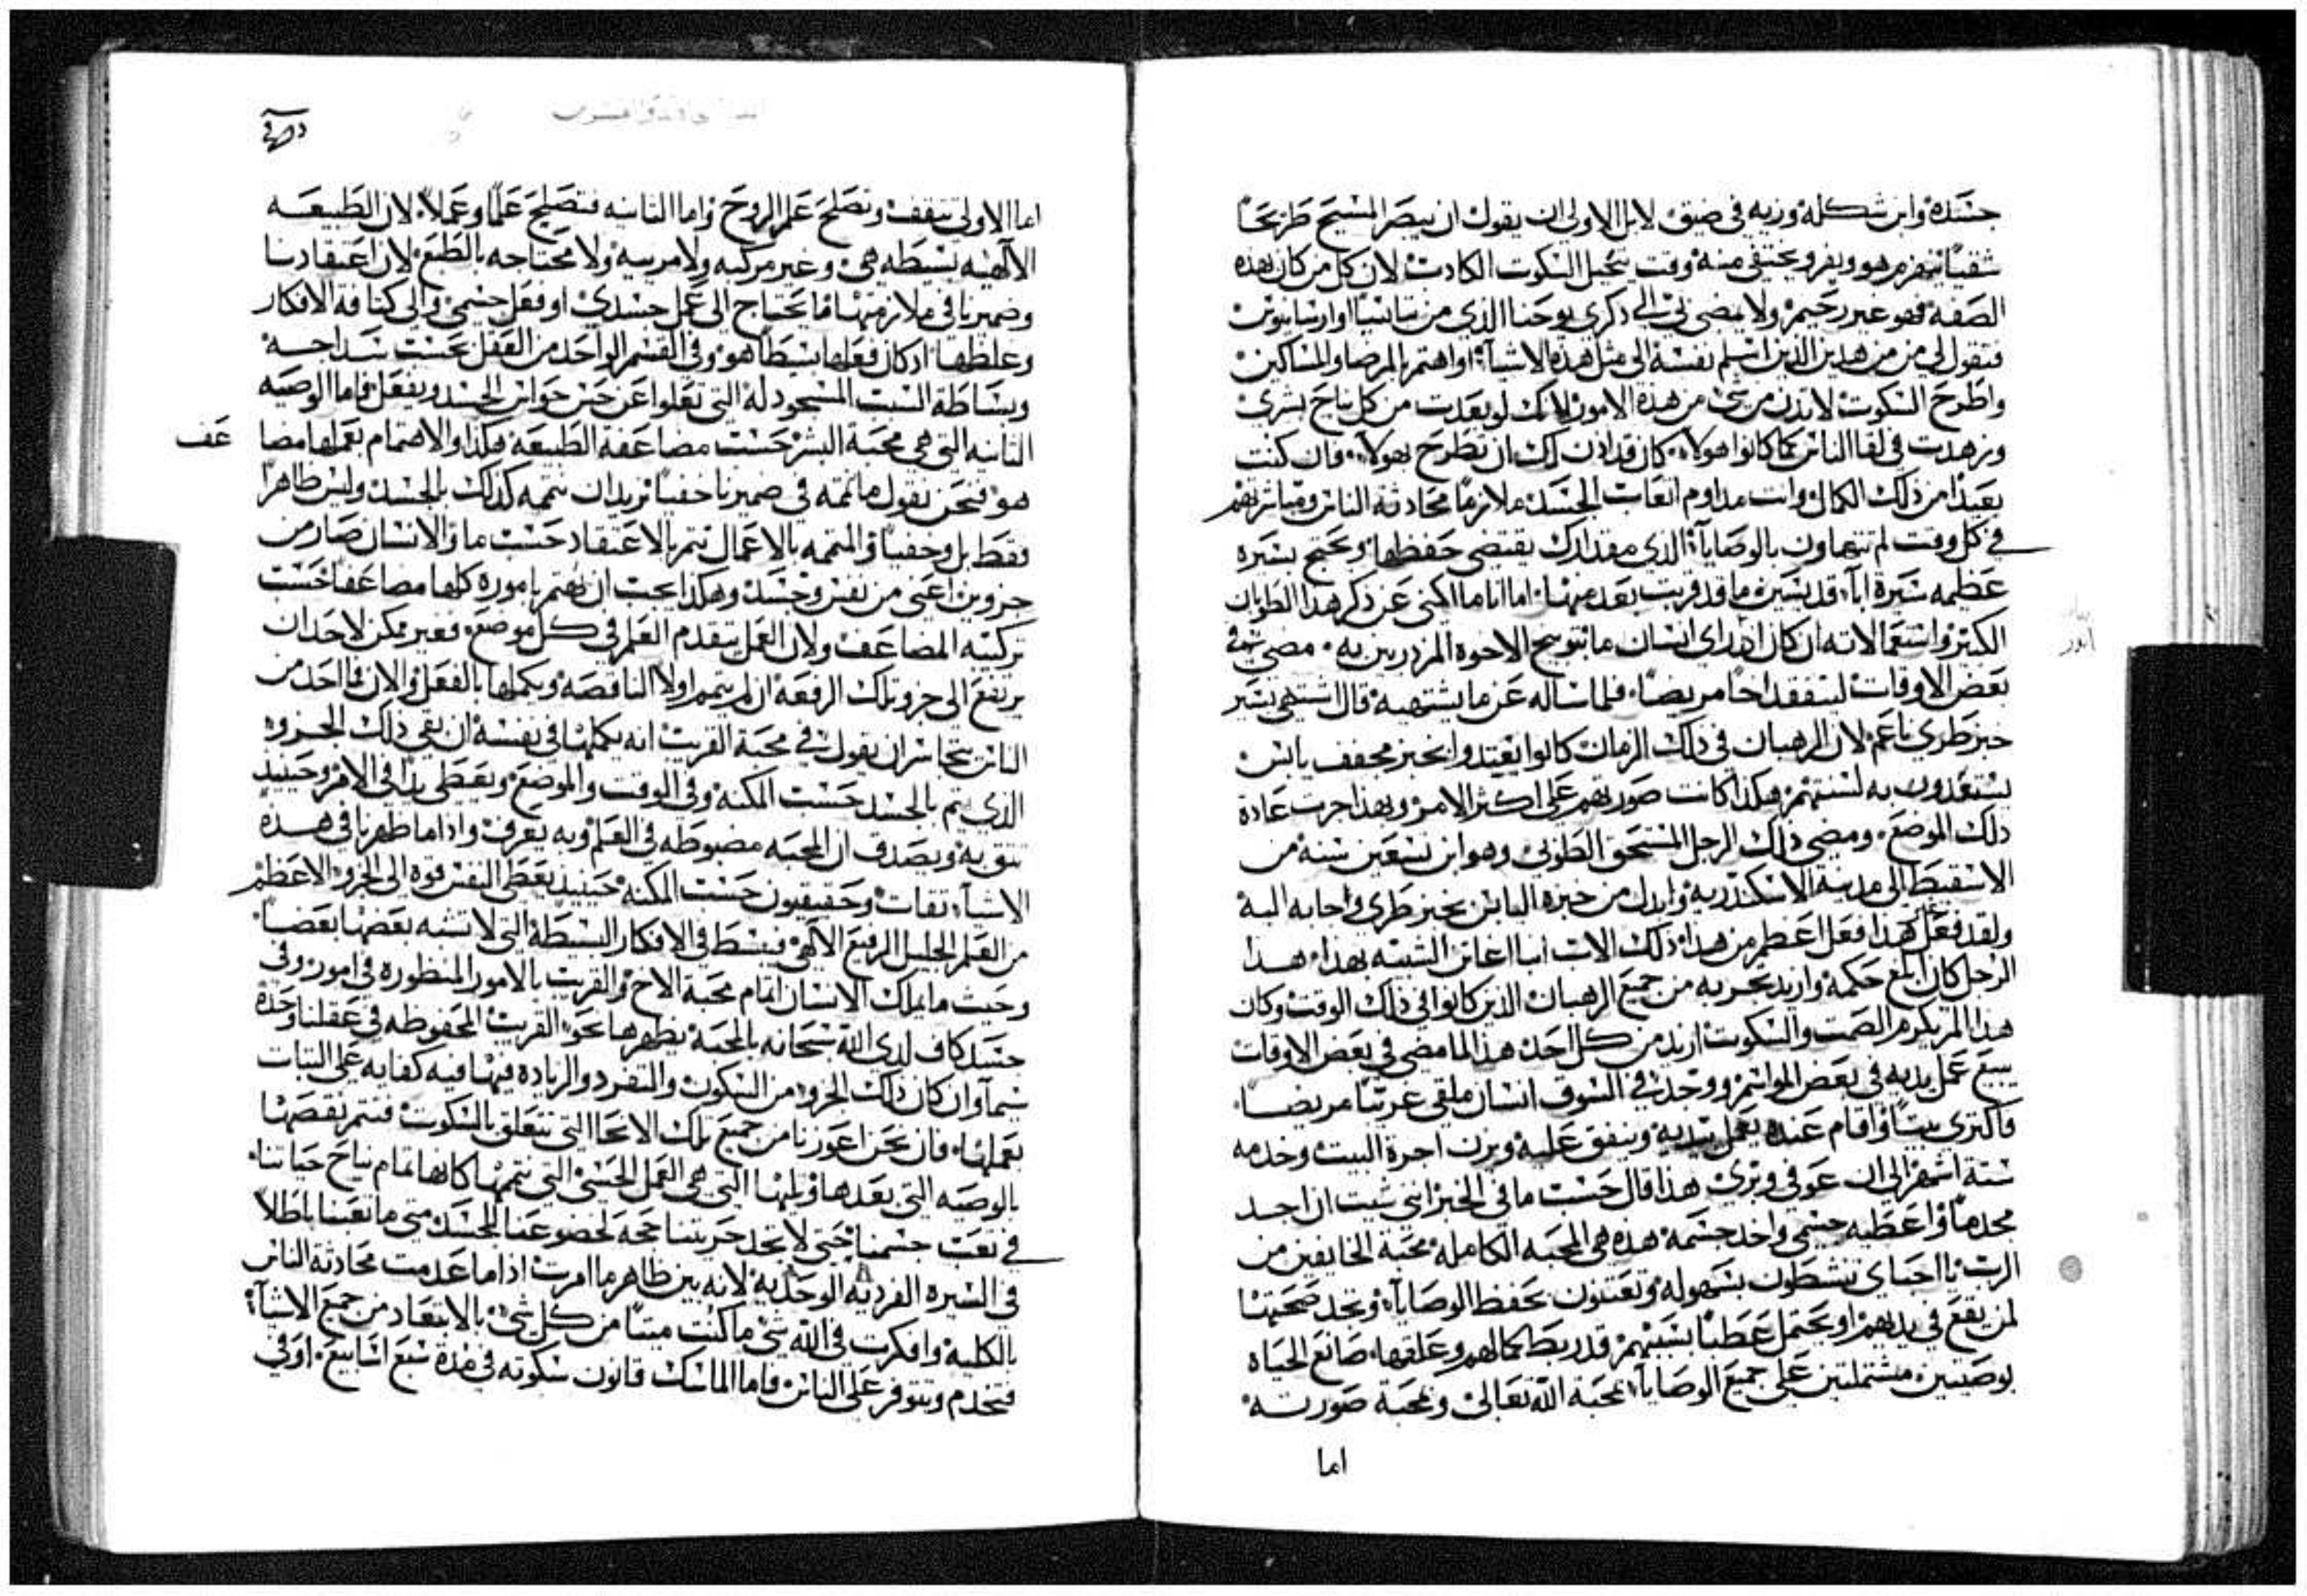 جسَده وابن شكله وزيه في ضيق لابل الاولي ان يقول ان يبصر المسيح طريحًا
شقيًا فيهزم هو ويفر ويختفي منه وقت يتخيل السكوت الكادب لان كل من كان بهذه
الصفه فهو غير رحيم ولا يمضي لي الي ذكري يوحنا الذي من تبانسيا او ارسانيوس
فتقول لي من من هدين الذين اسلم نفسه الي مثل هذه الاشيآ او اهتم بالمرضا والمساكين
واطرح السكوت لا تدن من شي من هذه الامور لانك لو بعدت من كل نياح بشري
وزهدت في لقا الناس كما كانوا هولاء كان قد ادن لك ان تطرح بهولاء فان كنت
بعيدًا من ذلك الكمال وانت مداوم اتعاب الجسد ملازمًا محادثة الناس ومباشرتهم
في كل وقت لم تتهاون بالوصايآ الذي مقدارك يقتضي حفظها وتحتج بسيره
عظيمه سيرة ابآ قديسين ما قد قربت بعد منها اما انا ما اكني عن ذكر هذا الطوبان
الكبير واستعمالاته ان كان اذا راي انسان ما بتوبيخ الاخوه المزدريين به مضي في
بعض الاوقات ليتفقد اخًا مريضًا فلما ساله عن ما يشتهيه قال اشتهي يسير
خبز طري ناعم لان الرهبان في ذلك الزمان كانوا يعتدوا بخبز مجفف يابس
يستعدون به لسنتهم هكذا كانت صورتهم علي اكثر الامر وبهذا جرت عادة
ذلك الموضع ومضي ذلك الرجل المستحق الطوبي وهو ابن تسعين سنه من
الاسقيط الي مدينة الاسكندريه وابدل من خبزه اليابس بخبز طري واجابه اليه
ولقد فعل هذا فعل اعظم من هذا ذلك الاب انبا اغاثن الشبيه بهذا هذا
الرجل كان ابلغ حكمه وازيد تجربه من جميع الرهبان الذين كانوا في ذلك الوقت وكان
هذا المرء يكرم الصمت والسكوت ازيد من كل احد هذا لما مضي في بعض الاوقات
يبيع عمل يديه في بعض المواسم ووجد في السوق انسان ملقي غريبًا مريضًا
فاكتري بيتًا واقام عنده يعمل بيديه وينفق عليه ويزن اجرة البيت وخدمه
ستة اشهر الي ان عوفي وبري هذا قال حسب ما في الخبر انني شيت ان اجد
مجدمًا واعطيه جسمي واخد جسمه هذه هي المحبه الكامله محبة الخايفين من
الرب يا احباي تنشطون بسهوله وتعتنون بحفظ الوصايآ وتجد صحبتها
لمن يقع في يديهم او يحتمل عطبًا بسببهم قد ربط كمالهم وعلقها صانع الحياه
بوصيتين مشتملتين علي جميع الوصايآ محبة الله تعالي ومحبة صورته
اما
اما الاولي تنقف وتصلح علم الروح واما التانيه فتصلح علمًا وعملًا لان الطبيعه
الآلهيه بسيطه هي وغير مركبه ولا مرييه ولا محتاجه بالطبع لان اعتقادنا
وضميرنا في ملازمتها ما يحتاج الي عمل جسدي او فعل جسمي والي كتافة الافكار
وغلظها اد كان فعلها بسيطًا هو وفي القسم الواحد من العقل بحسب سداجة
وبساطة السبب المسجود له التي تعلوا عن حس حواس الجسد ويفعل فاما الوصيه
التانيه التي هي محبة البشر حسب مضاعفة الطبيعه هكذا والاهتمام بعملها مضا عَف
هو فنحن نقول ما نتمه في ضميرنا خفيًا نريد ان نتمه كذلك بالجسد وليس ظاهرًا
فقط بل وخفيًا والمتممه بالاعمال تتم بالاعتقاد حسب ما والانسان صار من
جزوين اعني من نفس وجسد وهكذا يجب ان يهتم باموره كلها مضاعفًا حسب
تركيبه المضاعف ولان العمل يتقدم العلم في كل موضع فغير ممكن لاحد ان
يرتفع الي جزو تلك الرفعه ان لم يتمم اولًا الناقصه ويكملها بالفعل والان فما احد من
الناس يتجاسر ان يقول في محبة القريب انه يكملها في نفسه ان بقي ذلك الجزوء
الذي يتم بالجسد حسب المكنه وفي الوقت والموضع ويعطي يدًا في الامر وحينيد
نتق به ويصدق ان المحبه مضبوطه في العلم وبه يعرف واذا ما ظهرنا في هذه
الاشيآ تقات وحقيقيون حسب المكنه حينيد يعطي النفس قوه الي الجزو الاعظم
من العلم الجليل الرفيع الالهي فيبسط في الافكار البسيطه التي لا تشبه بعضها بعضًا
وحيث ما يملك الانسان اتمام محبة الاخ والقريب بالامور المنظوره في امور وفي
جسد كاف لدي الله سبحانه بالمحبه يظهرها نحو القريب المحفوظه في عقلنا وحده
سيمآ وان كان ذلك الجزو من السكون والتفرد والزياده فيها فيه كفايه علي التبات
بعملها فان نحن اعوزنا من جميع تلك الانحا التي تتعلق بالسكوت فنتم نقصها
بالوصيه التي بعدها ويلها التي هي العمل الحسي التي نتمها كانها تمام نياح حياتنا
في تعب جسمنا حتي لا تجد حريتنا حجه لخضوعنا للجسد متي ما تعبنا باطلًا
في السيره الفرديه الوحديه لانه بين ظاهر ما امرت اذا ما عدمت محادثة الناس
بالكليه وافكرت في الله شي ما كنت ميتًا من كل شي بالابتعاد من جميع الاشيآ
فتخدم وتتوفر علي الناس فاما الماسك قانون سكوته في مدة سبع اسابيع او في